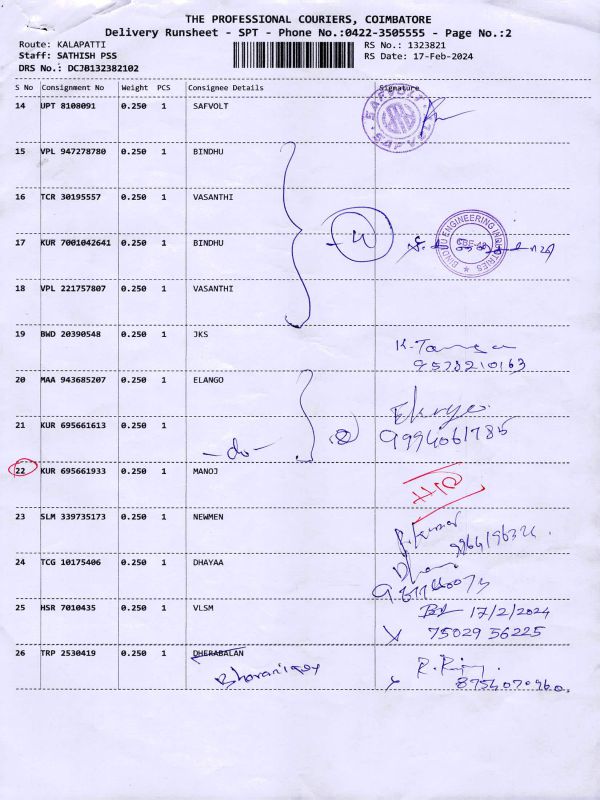 THE PROFESSIONAL COURIERS, COIMBATORE
Delivery Runsheet - SPT - Phone No.:0422-3505555 - Page No.:2
Route: KALAPATTI RS No.: 1323821
Staff: SATHISH PSS RS Date: 17-Feb-2024
DRS No.: DCJB132382102
S No Consignment No Weight PCS Consignee Details Signature
14 UPT 8108091 0.250 1 SAFVOLT
SAFVOLT SAFVOLT
15 VPL 947278780 0.250 1 BINDHU
16 TCR 30195557 0.250 1 VASANTHI
17 KUR 7001042641 0.250 1 BINDHU
BINDHU ENGINEERING INDUSTRIES
18 VPL 221757807 0.250 1 VASANTHI
19 BWD 20390548 0.250 1 JKS
9578210163
20 MAA 943685207 0.250 1 ELANGO
21 KUR 695661613 0.250 1
-do- 9994061785
22 KUR 695661933 0.250 1 MANOJ
23 SLM 339735173 0.250 1 NEWMEN
P. Kumar
24 TCG 10175406 0.250 1 DHAYAA
25 HSR 7010435 0.250 1 VLSM 17/2/2024
75029 56225
26 TRP 2530419 0.250 1 DHERABALAN
8754070960.